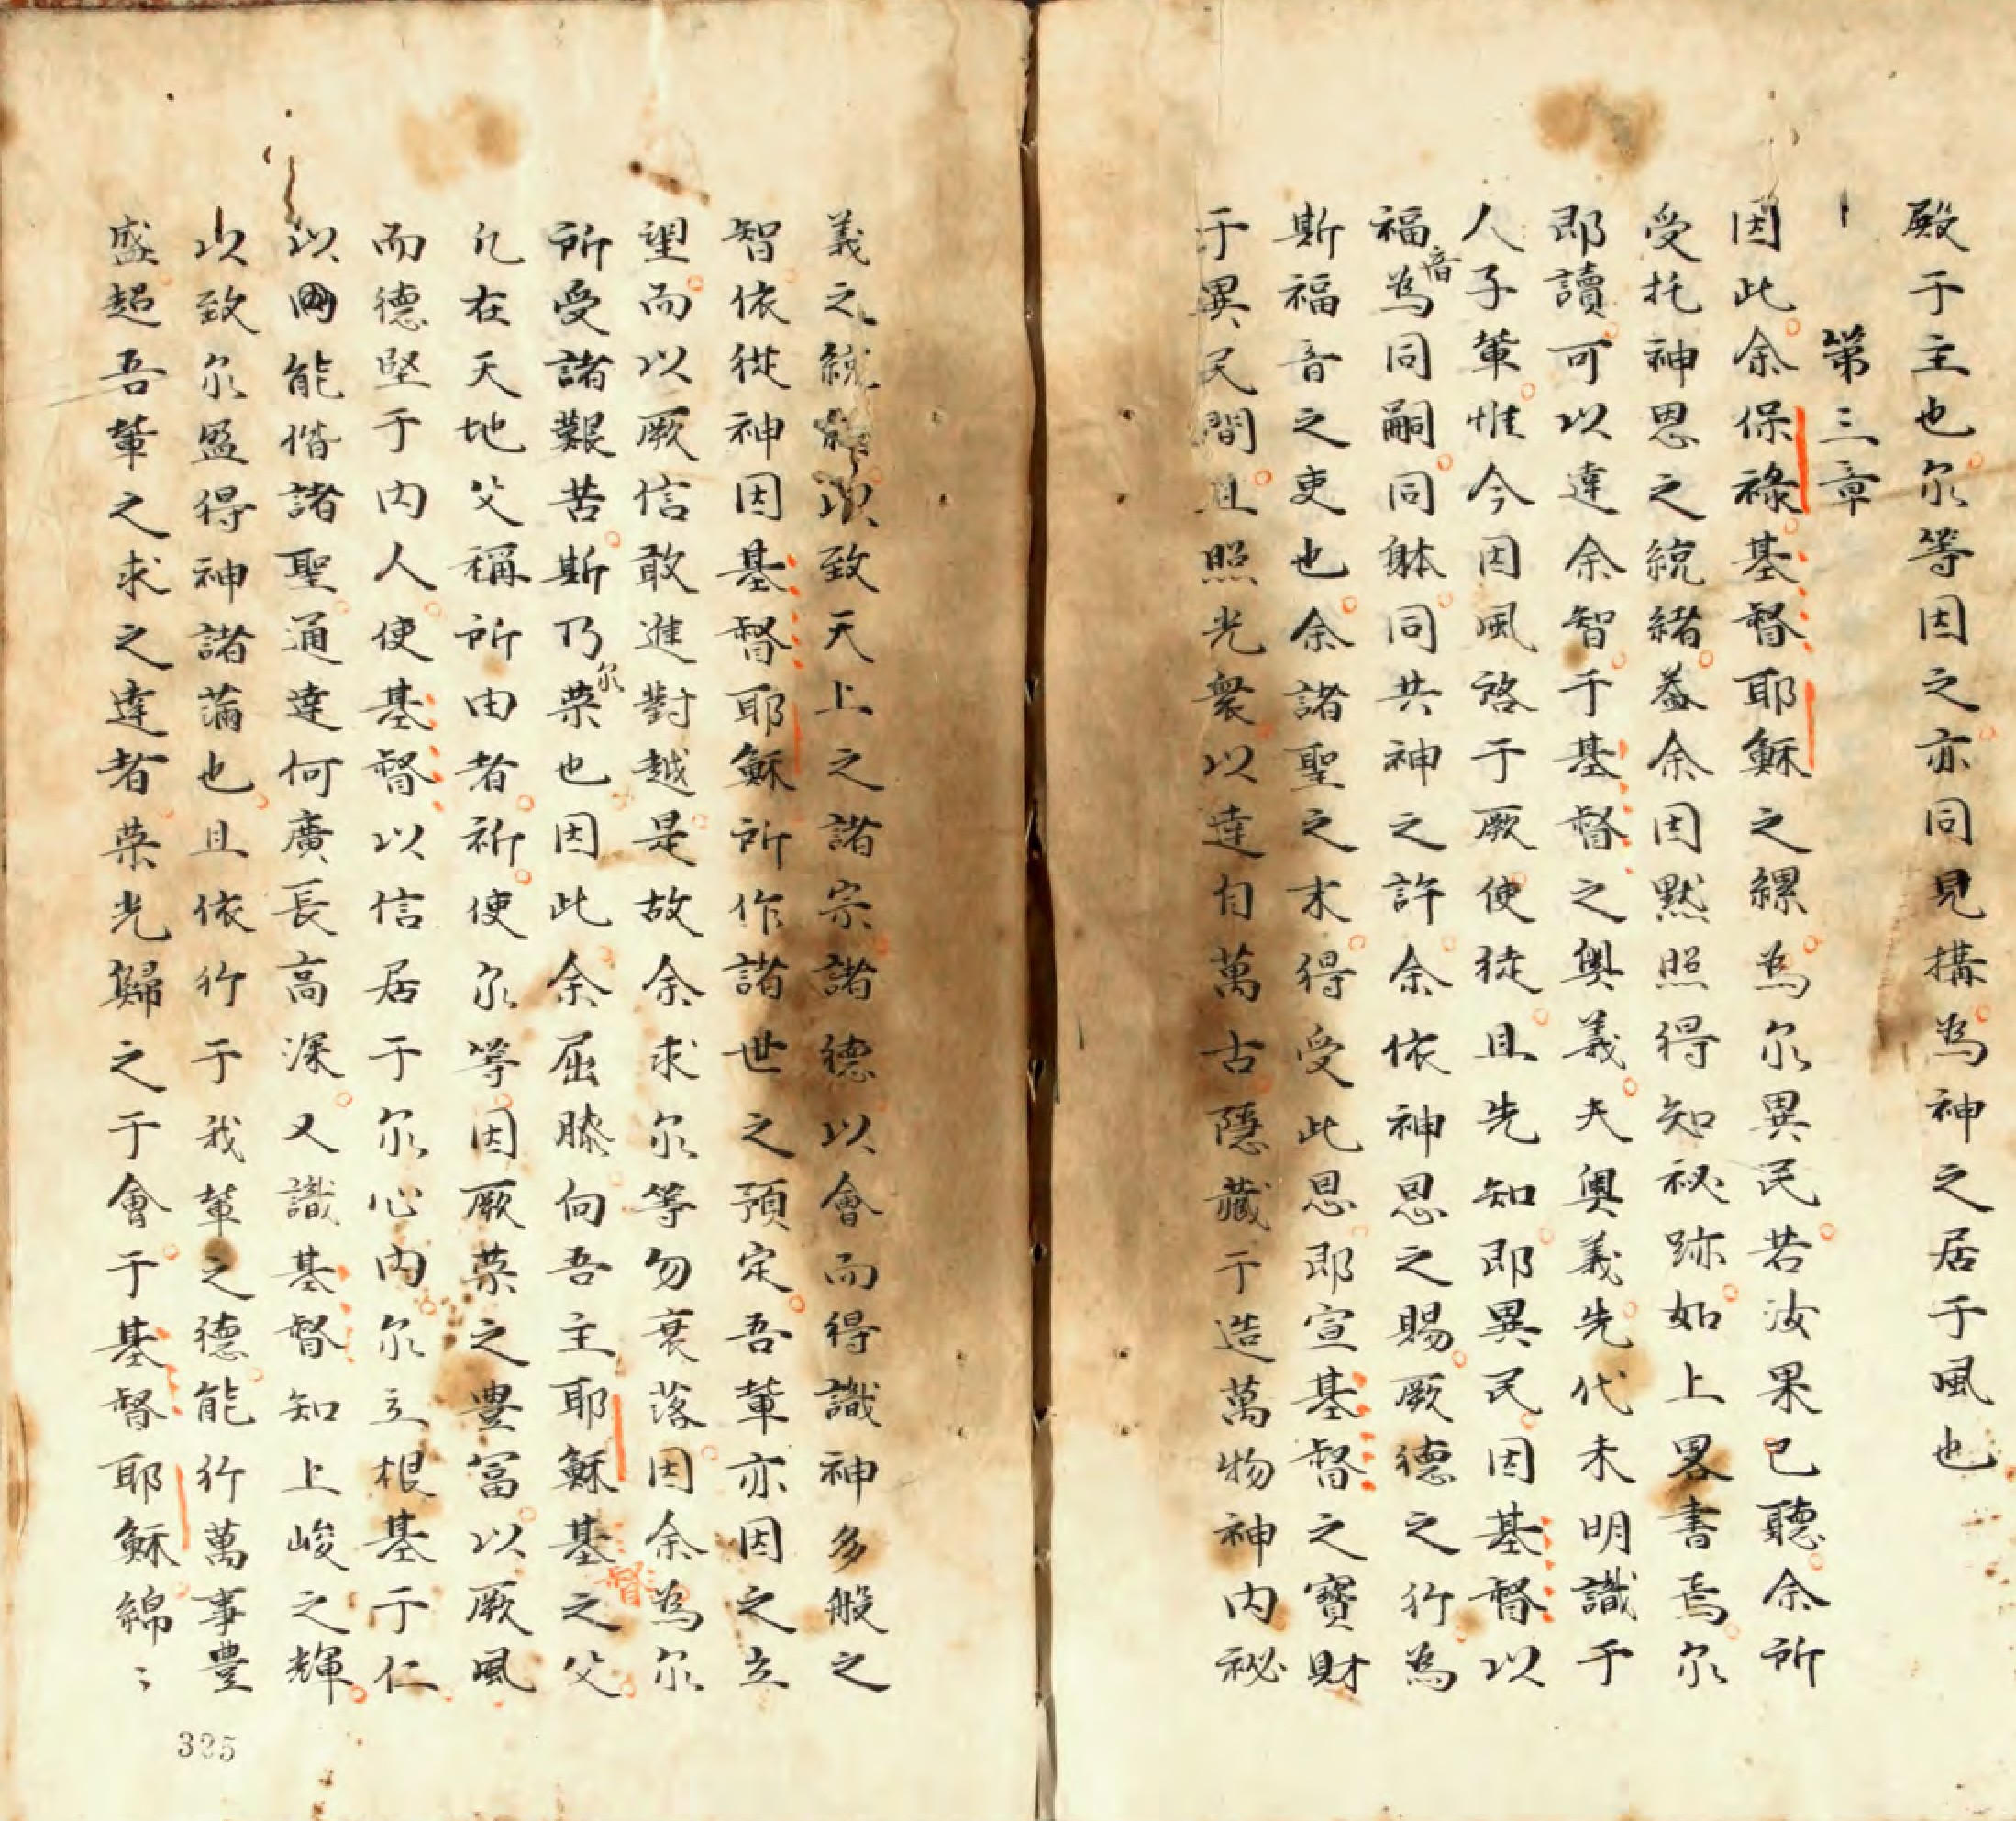 殿于主也尔等因之亦同見搆為神之居于風也
第三章
因此余保祿基督耶穌之縲為尔異民若汝果已聽余所
受托神恩之統緒葢余因黙照得知祕跡如上畧書焉尔
即讀可以達余智于基督之奧義夫奧義先代未明識于
人子軰惟今因風啓于厥使徒且先知即異民因基督以
福音為同嗣同躰同共神之許余依神恩之賜厥德之行為
斯福音之吏也余諸聖之末得受此恩即宣基督之寶財
于異民間且照光衆以達自萬古隱藏于造萬物神內祕
義之統以致天上之諸宗諸德以會而得識神多般之
智依從神因基督耶穌所作諸世之預定吾軰亦因之立
望而以厥信敢進對越是故余求尔等勿衰落因余為尔
所受諸艱苦斯乃尔荣也因此余屈膝向吾主耶穌基督之父
凢在天地父稱所由者祈使尔等因厥荣之豐冨以厥風
而德堅于內人使基督以信居于尔心內尔立根基于仁
以能偕諸聖通達何廣長高深又識基督知上峻之輝
以致尔盈得神諸滿也且依行于我軰之德能行萬事豐
盛超吾軰之求之達者荣光歸之于會于基督耶穌綿〻
325